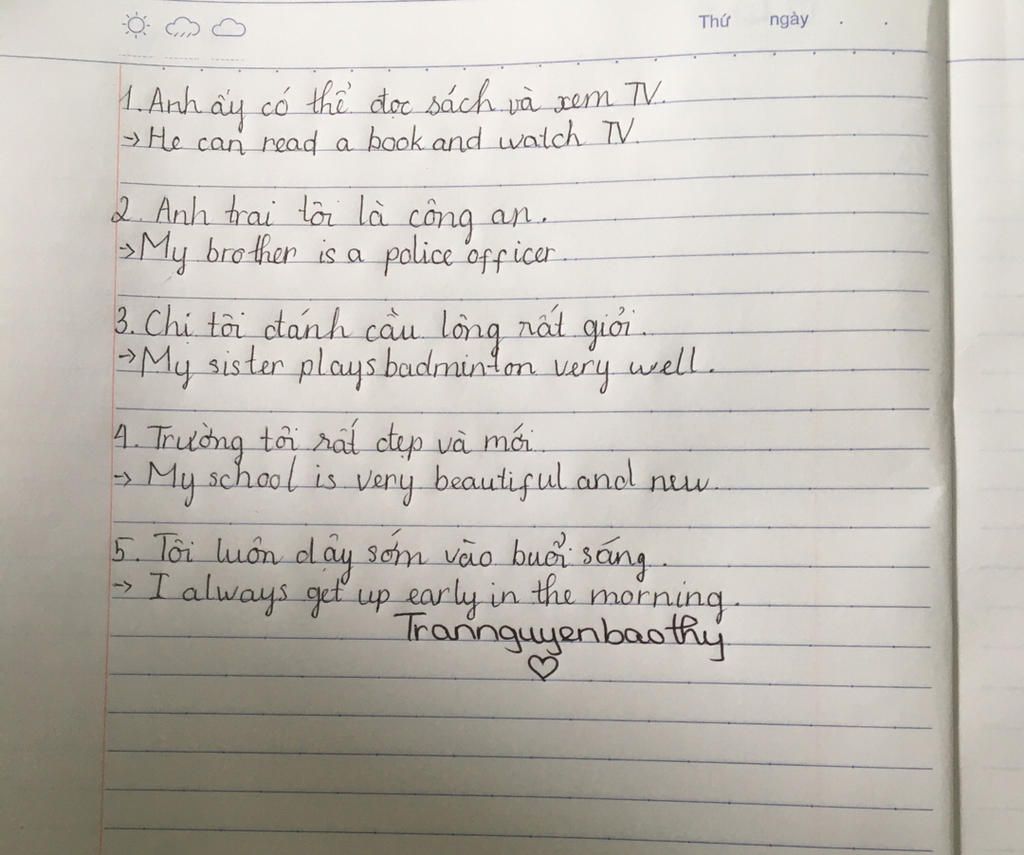 Thứ ngày . .
1. Anh ấy có thể đọc sách và xem TV.
→ He can read a book and watch TV.
2. Anh trai tôi là công an.
→ My brother is a police officer
3. Chị tôi đánh cầu lông rất giỏi.
→ My sister plays badminton very well.
4. Trường tôi rất đẹp và mới.
→ My school is very beautiful and new.
5. Tôi luôn dậy sớm vào buổi sáng.
→ I always get up early in the morning.
Trannguyenbaothy
♡